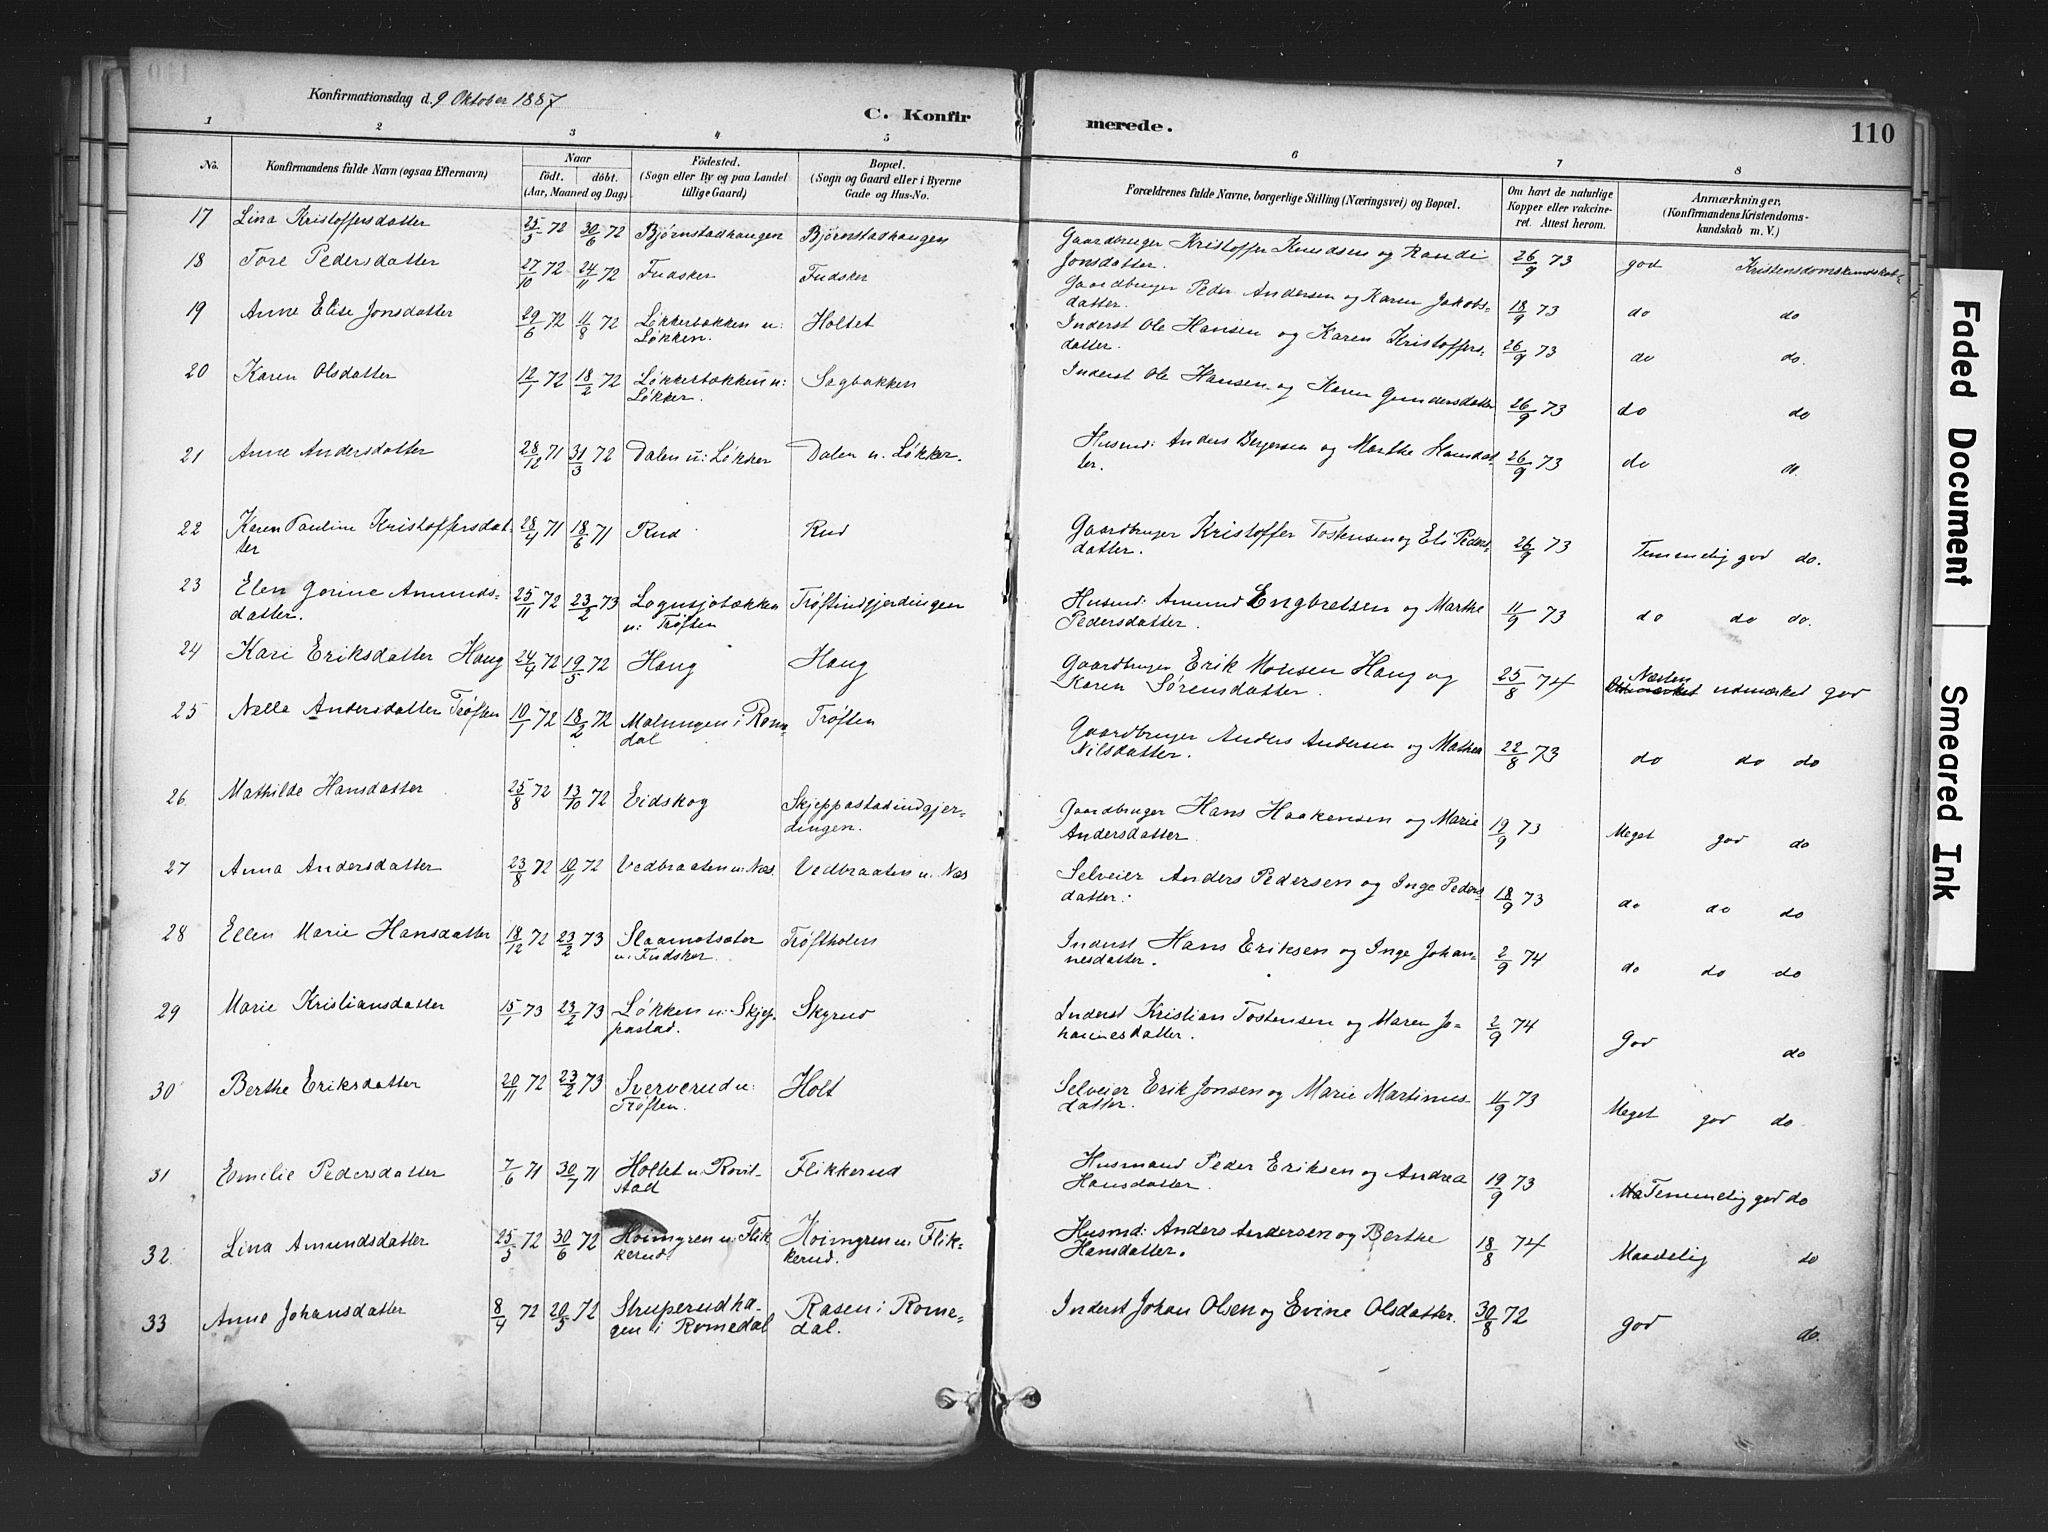 Konfirmationsdag d. 9 Oktober 1887
C. Konfirmerede. 110
1 2 3 4 5 6 7 8
No. Konfirmandens fulde Navn (ogsaa Efternavn) Naar födt. döbt. (Aar, Maaned og Dag) Födested. (Sogn eller By og paa Landet tillige Gaard) Bopæl. (Sogn og Gaard eller i Byerne Gade og Hus-No. Forældrenes fulde Navne, borgerlige Stilling (Næringsvei) og Bopæl. Om havt de naturlige Kopper eller vakcineret. Attest herom. Anmærkninger. (Konfirmandens Kristendomskundskab m. V.)
17 Lina Kristoffersdatter 25/5 72 30/6 72 Bjørnstadhaugen Bjørnstadhaugen Gaardbruger Kristoffer Knudsen og Randi Jonsdatter. 26/9 73 god Kristensdomskundskab
18 Tore Pedersdatter 27/10 72 24/11 72 Fudsker Fudsker Gaardbruger Peder Andersen og Karen Jakobsdatter. 18/9 73 do do
19 Anne Elise Jonsdatter 29/6 72 11/8 72 Løkkerbakken u: Løkken. Holtet Inderst Ole Hansen og Karen Kristoffersdatter. 26/9 73 do do.
20 Karen Olsdatter 12/1 72 18/2 72 Løkkerbakken u: Løkker. Sagbakken Inderst Ole Hansen og Karen Gundersdatter 26/9 73 do do
21 Anne Andersdatter 28/12 71 31/3 72 Dalen u: Løkker Dalen u. Løkker. Husmd: Anders Bergersen og Marthe Hansdatter. 26/9 73 do do.
22 Karen Pauline Kristoffersdatter 28/4 71 18/6 71 Rud Rud Gaardbruger Kristoffer Tostensen og Eli Pedersdatter. 26/9 73 Temmelig god do.
23 Elen Gorine Amundsdatter. 25/11 72 23/2 73 Lognsjøbækken u: Trøften Trøftindgjerdingen Husmd: Amund Engbretsen og Marthe Pedersdatter. 11/9 73 do do do.
24 Kari Eriksdatter Haug 24/4 72 19/5 72 Haug Haug Gaardbruger Erik Monsen Haug og Karen Sørensdatter. 25/8 74 Næsten udmærket god
25 Nella Andersdatter Trøften 10/1 72 18/2 72 Malungen i Romedal Trøften Gaardbruger Anders Andersen og Mathea Nilsdatter. 22/8 73 do do do
26 Mathilde Hansdatter 25/8 72 13/10 72 Eidskog Skjeppastadindgjerdingen. Gaardbruger Hans Haakensen og Marie Andersdatter. 19/9 73 Meget god do
27 Anna Andersdatter 23/8 72 10/11 72 Vedbraaten u. Næs. Vedbraaten u. Næs Selveier Anders Pedersen og Inge Pedersdatter. 18/9 73 do do do
28 Ellen Marie Hansdatter 18/12 72 23/2 73 Slaamotsæter u. Fudsker. Trøftholen Inderst Hans Eriksen og Inge Johannesdatter. 2/9 74 do do do
29 Marie Kristiansdatter 15/1 73 23/2 73 Løkken u: Skjeppastad. Skyrud Inderst Kristian Tostensen og Maren Johannesdatter. 2/9 74 god do
30 Berthe Eriksdatter 20/11 72 23/2 73 Sververud u: Trøften. Holt Selveier Erik Jonsen og Marie Martinusdatter. 11/9 73 Meget god do.
31 Emelie Pedersdatter 7/6 71 30/7 71 Holtet u. Rovitstad Flikkerud Husmand Peder Eriksen og Andrea Hansdatter. 19/9 73 Temmelig god do
32 Lina Amundsdatter 25/5 72 30/6 72 Hoimyren u: Flikkerud. Hoimyren u. Flikkerud. Husmd: Anders Andersen og Berthe Hansdatter. 18/8 74 Maadelig do
33 Anne Johansdatter 8/4 72 20/5 72 Struperudhagen i Romedal Rasen i Romedal. Inderst Johan Olsen og Evine Olsdatter. 30/8 72 god do.
Faded Document
Smeared Ink